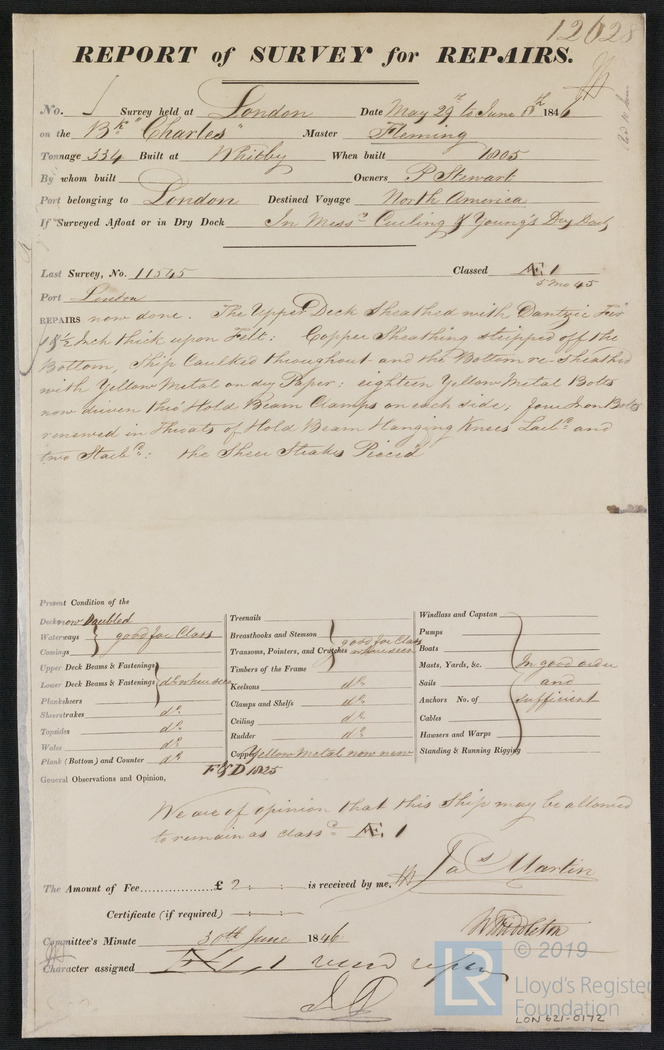 12628
REPORT of SURVEY for REPAIRS.
No. Survey held at London Date May 29th to June 8th 1846
on the Bk "Charles" Master Fleming
Tonnage 334 Built at Whitby When built 1805
By whom built Owners P Stewart
Port belonging to London Destined Voyage North America
If Surveyed Afloat or in Dry Dock In Messrs Curling & Young's Dry Dock
Last Survey, No. 11545 Classed Æ 1
5 Mo 45
Port London
REPAIRS now done. The Upper Deck Sheathed with Dantzic Fir
Inch thick upon Felt: Copper Sheathing stripped off the
Bottom, Ship Caulked throughout and the Bottom re-sheathed
with Yellow Metal on dry Paper: eighteen Yellow Metal Bolts
now driven thro' Hold Beam Clamps on each side, four Iron Bolts
renewed in Throats of Hold Beam Hanging Knees Larbd and
two Starbd: the Sheer Strakes Pieced
Present Condition of the
Decks now Doubled
Waterways good for Class
Comings
Upper Deck Beams & Fastenings
Lower Deck Beams & Fastenings do where seen
Planksheers
Sheerstrakes do
Topsides do
Wales do
Plank (Bottom) and Counter do
Treenails
Breasthooks and Stemson good for Class
Transoms, Pointers, and Crutches where seen
Timbers of the Frame
Keelsons do
Clamps and Shelfs do
Ceiling do
Rudder do
Copper Yellow Metal now new
Windlass and Capstan
Pumps
Boats
Masts, Yards, &c. In good order
Sails and
Anchors No. of sufficient
Cables
Hawsers and Warps
Standing & Running Rigging
F&D 1825
General Observations and Opinion,
We are of opinion that this Ship may be allowed
to remain as classed Æ 1
The Amount of Fee £ 2 is received by me, Jas Martin
Certificate (if required)
W Middleton
Committee's Minute 30th June 1846
Character assigned Æ 1
© 2019
LR
Lloyd's Register
Foundation
LON 621-0172